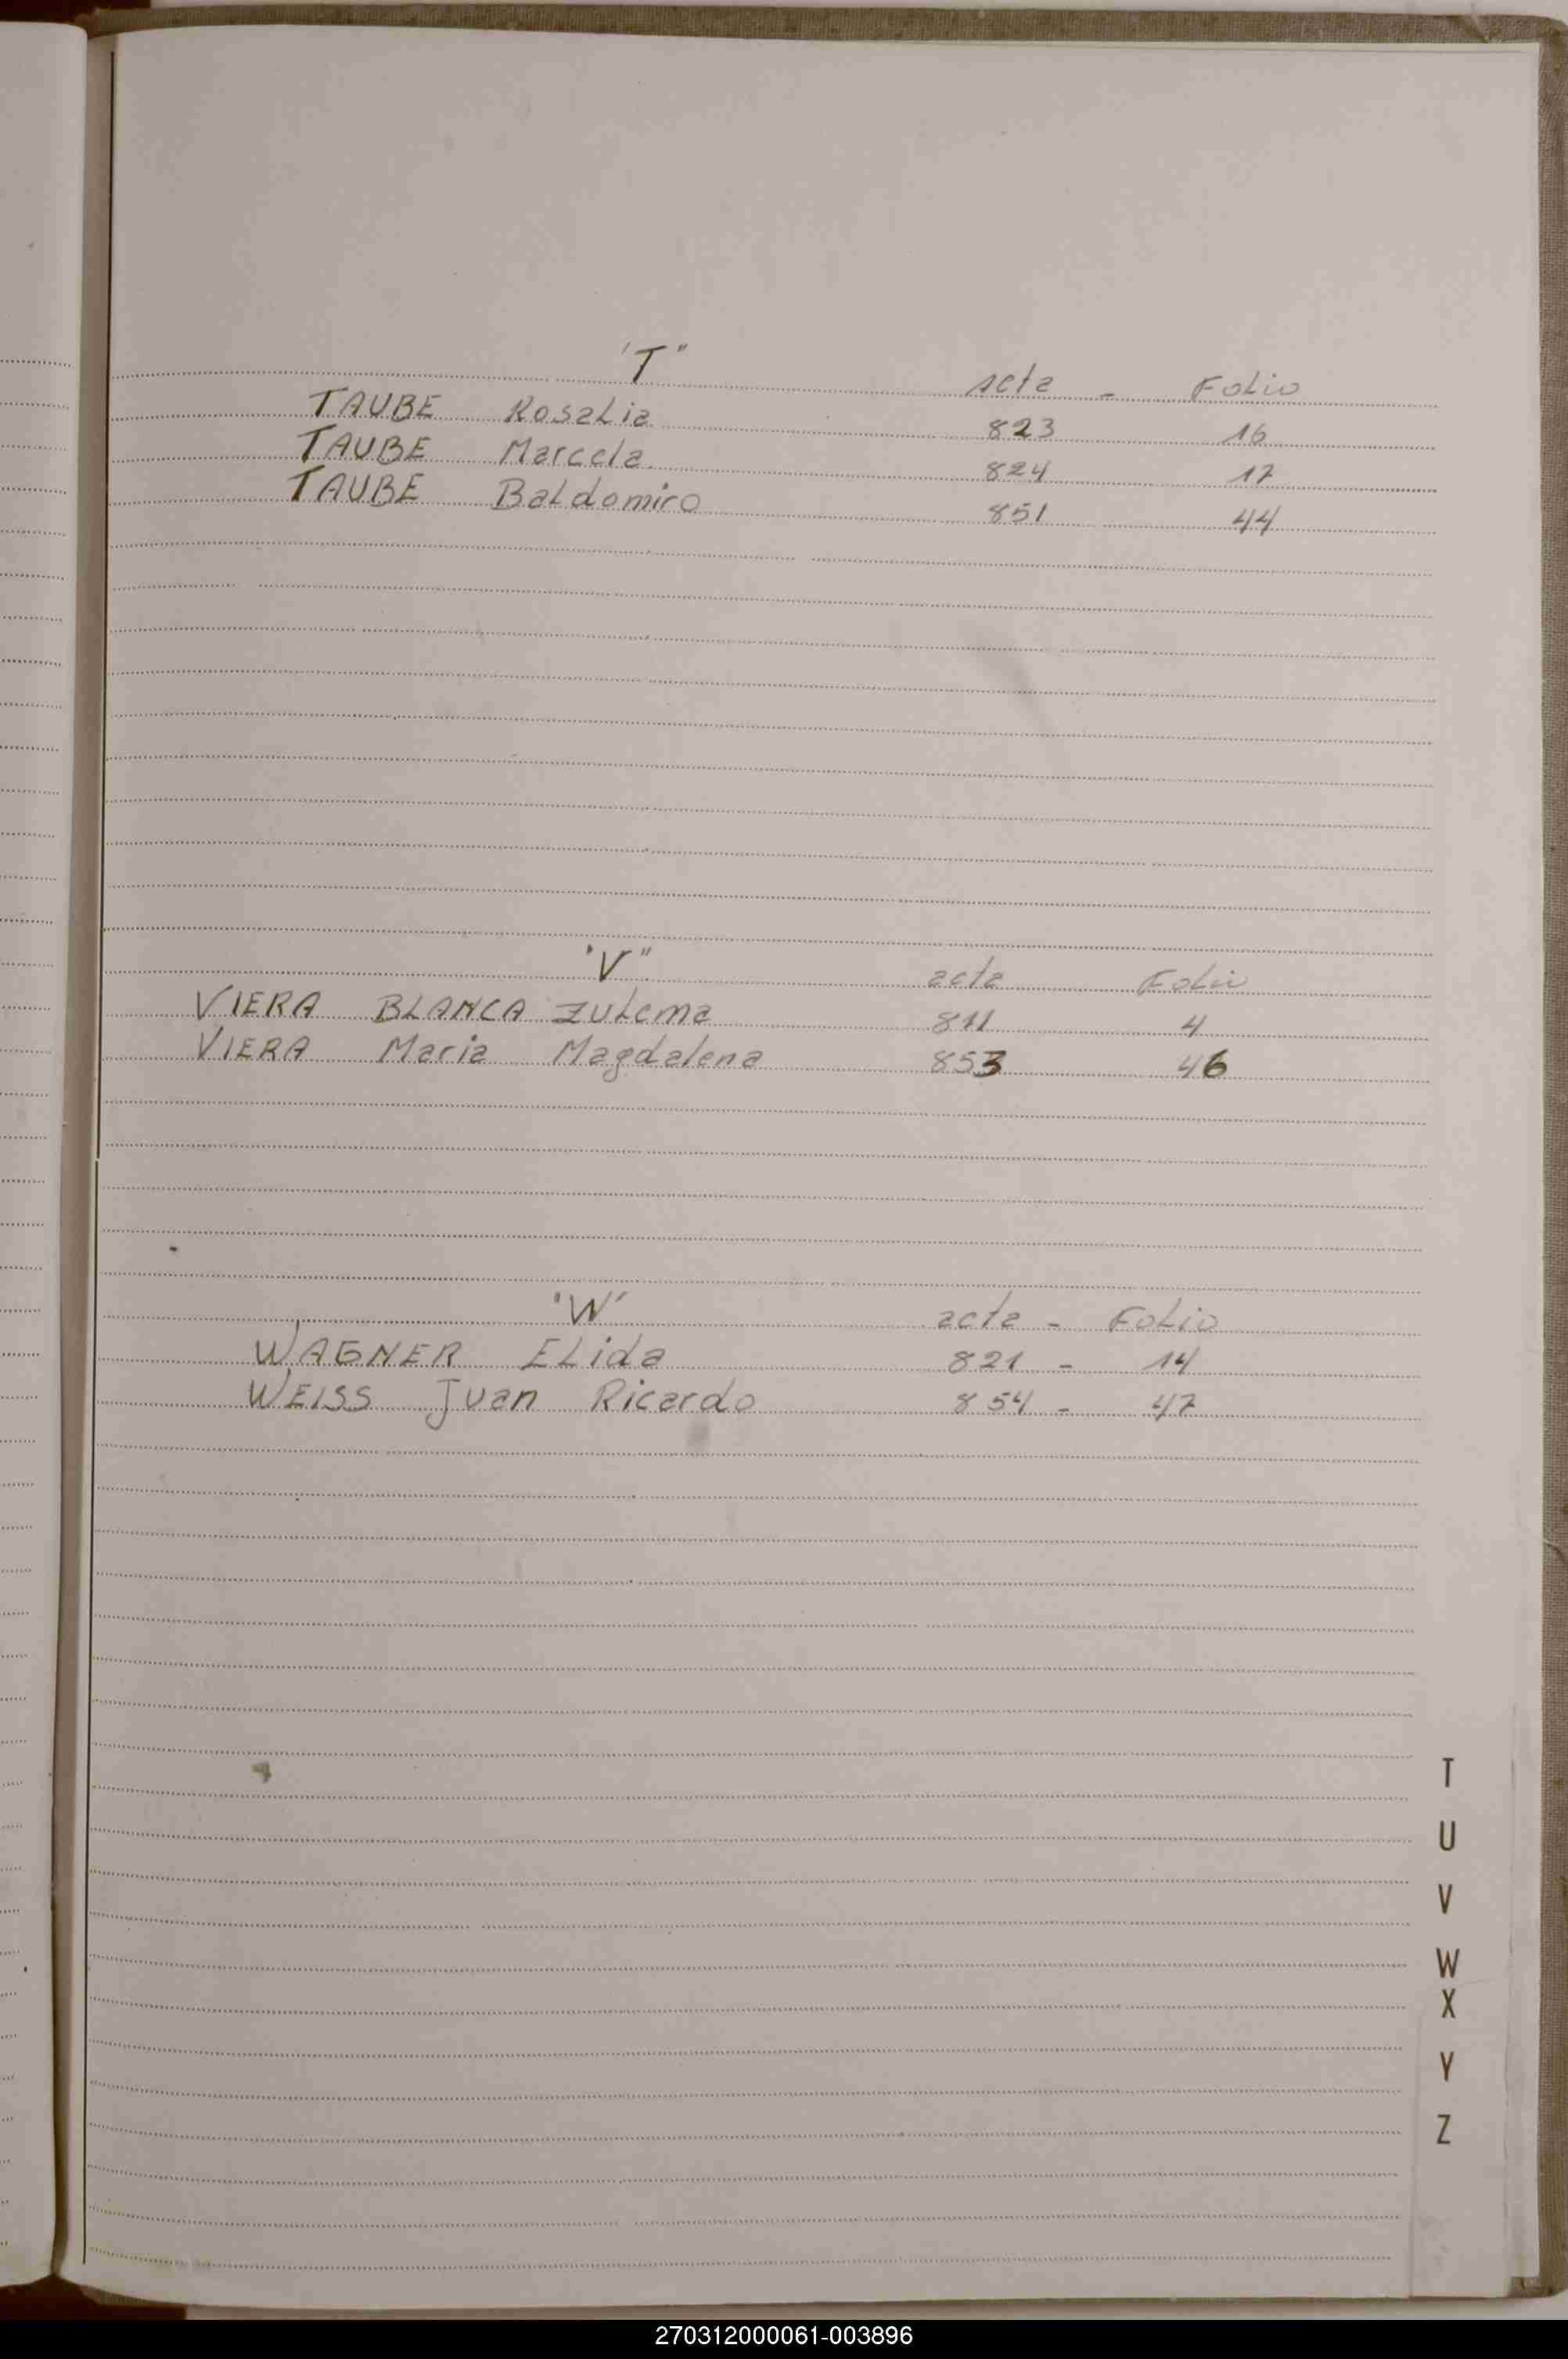 "T" acta - Folio
TAUBE Rosalia 823 16
TAUBE Marcela. 824 17
TAUBE Baldomiro 851 44
"V" acta Folio
VIERA BLANCA Zulema 811 4
VIERA Maria Magdalena 853 46
"W" acta - Folio
WAGNER Elida 821 - 14
WEISS Juan Ricardo 854 - 47
T
U
V
W
X
Y
Z
270312000061-003896